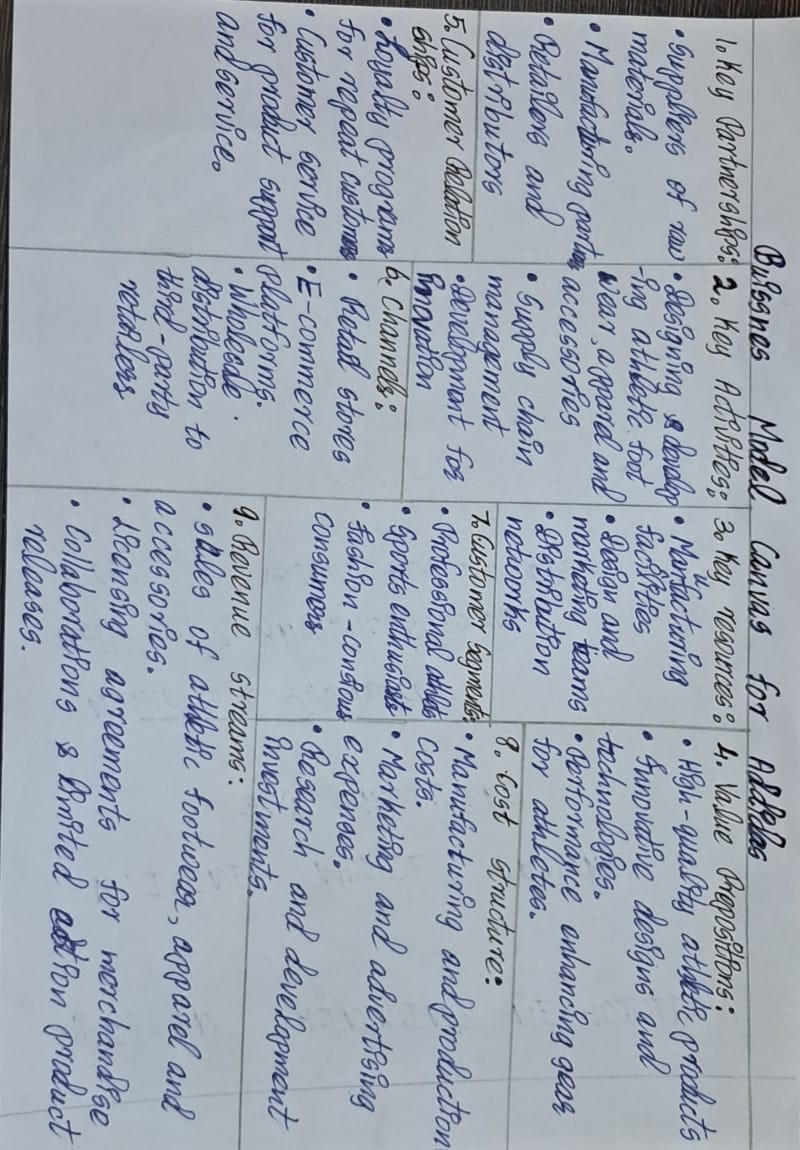 Buissnes Model Canvas for Addidas
1. Key Partnerships:
• Suppliers of raw
materials.
• Manufacturing partners
• Retailers and
distributors
2. Key Activities:
• Designing & develop
-ing athletic foot
wear, apparel and
accessories
• Supply chain
management
• Development for
innovation
3. Key resources:
• Manufacturing
facilities
• Design and
marketing teams
• Distribution
networks
4. Value Prepositions:
• High-quality athletic products
• Innovative designs and
technologies.
• Performance enhancing gear
for athletes.
5. Customer Relation
ships:
• Loyalty programs
for repeat customers
• Customer service
for product support
and service.
6. Channels:
• Retail stores
• E-commerce
platforms.
• Wholesale
distribution to
third-party
retailers
7. Customer Segments:
• Professional athletes
• Sports enthusiasts
• Fashion-consious
consumers
8. Cost structure:
• Manufacturing and production
costs.
• Marketing and advertising
expenses.
• Research and development
investments.
9. Revenue streams:
• Sales of athletic footwear, apparel and
accessories.
• Licensing agreements for merchandise
• Collaborations & limited edition product
releases.